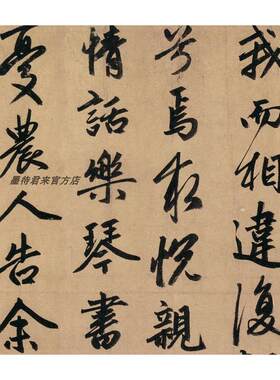 我而相違復
兮焉求悅親
情話樂琴書
憂農人告余
墨待君来官方店